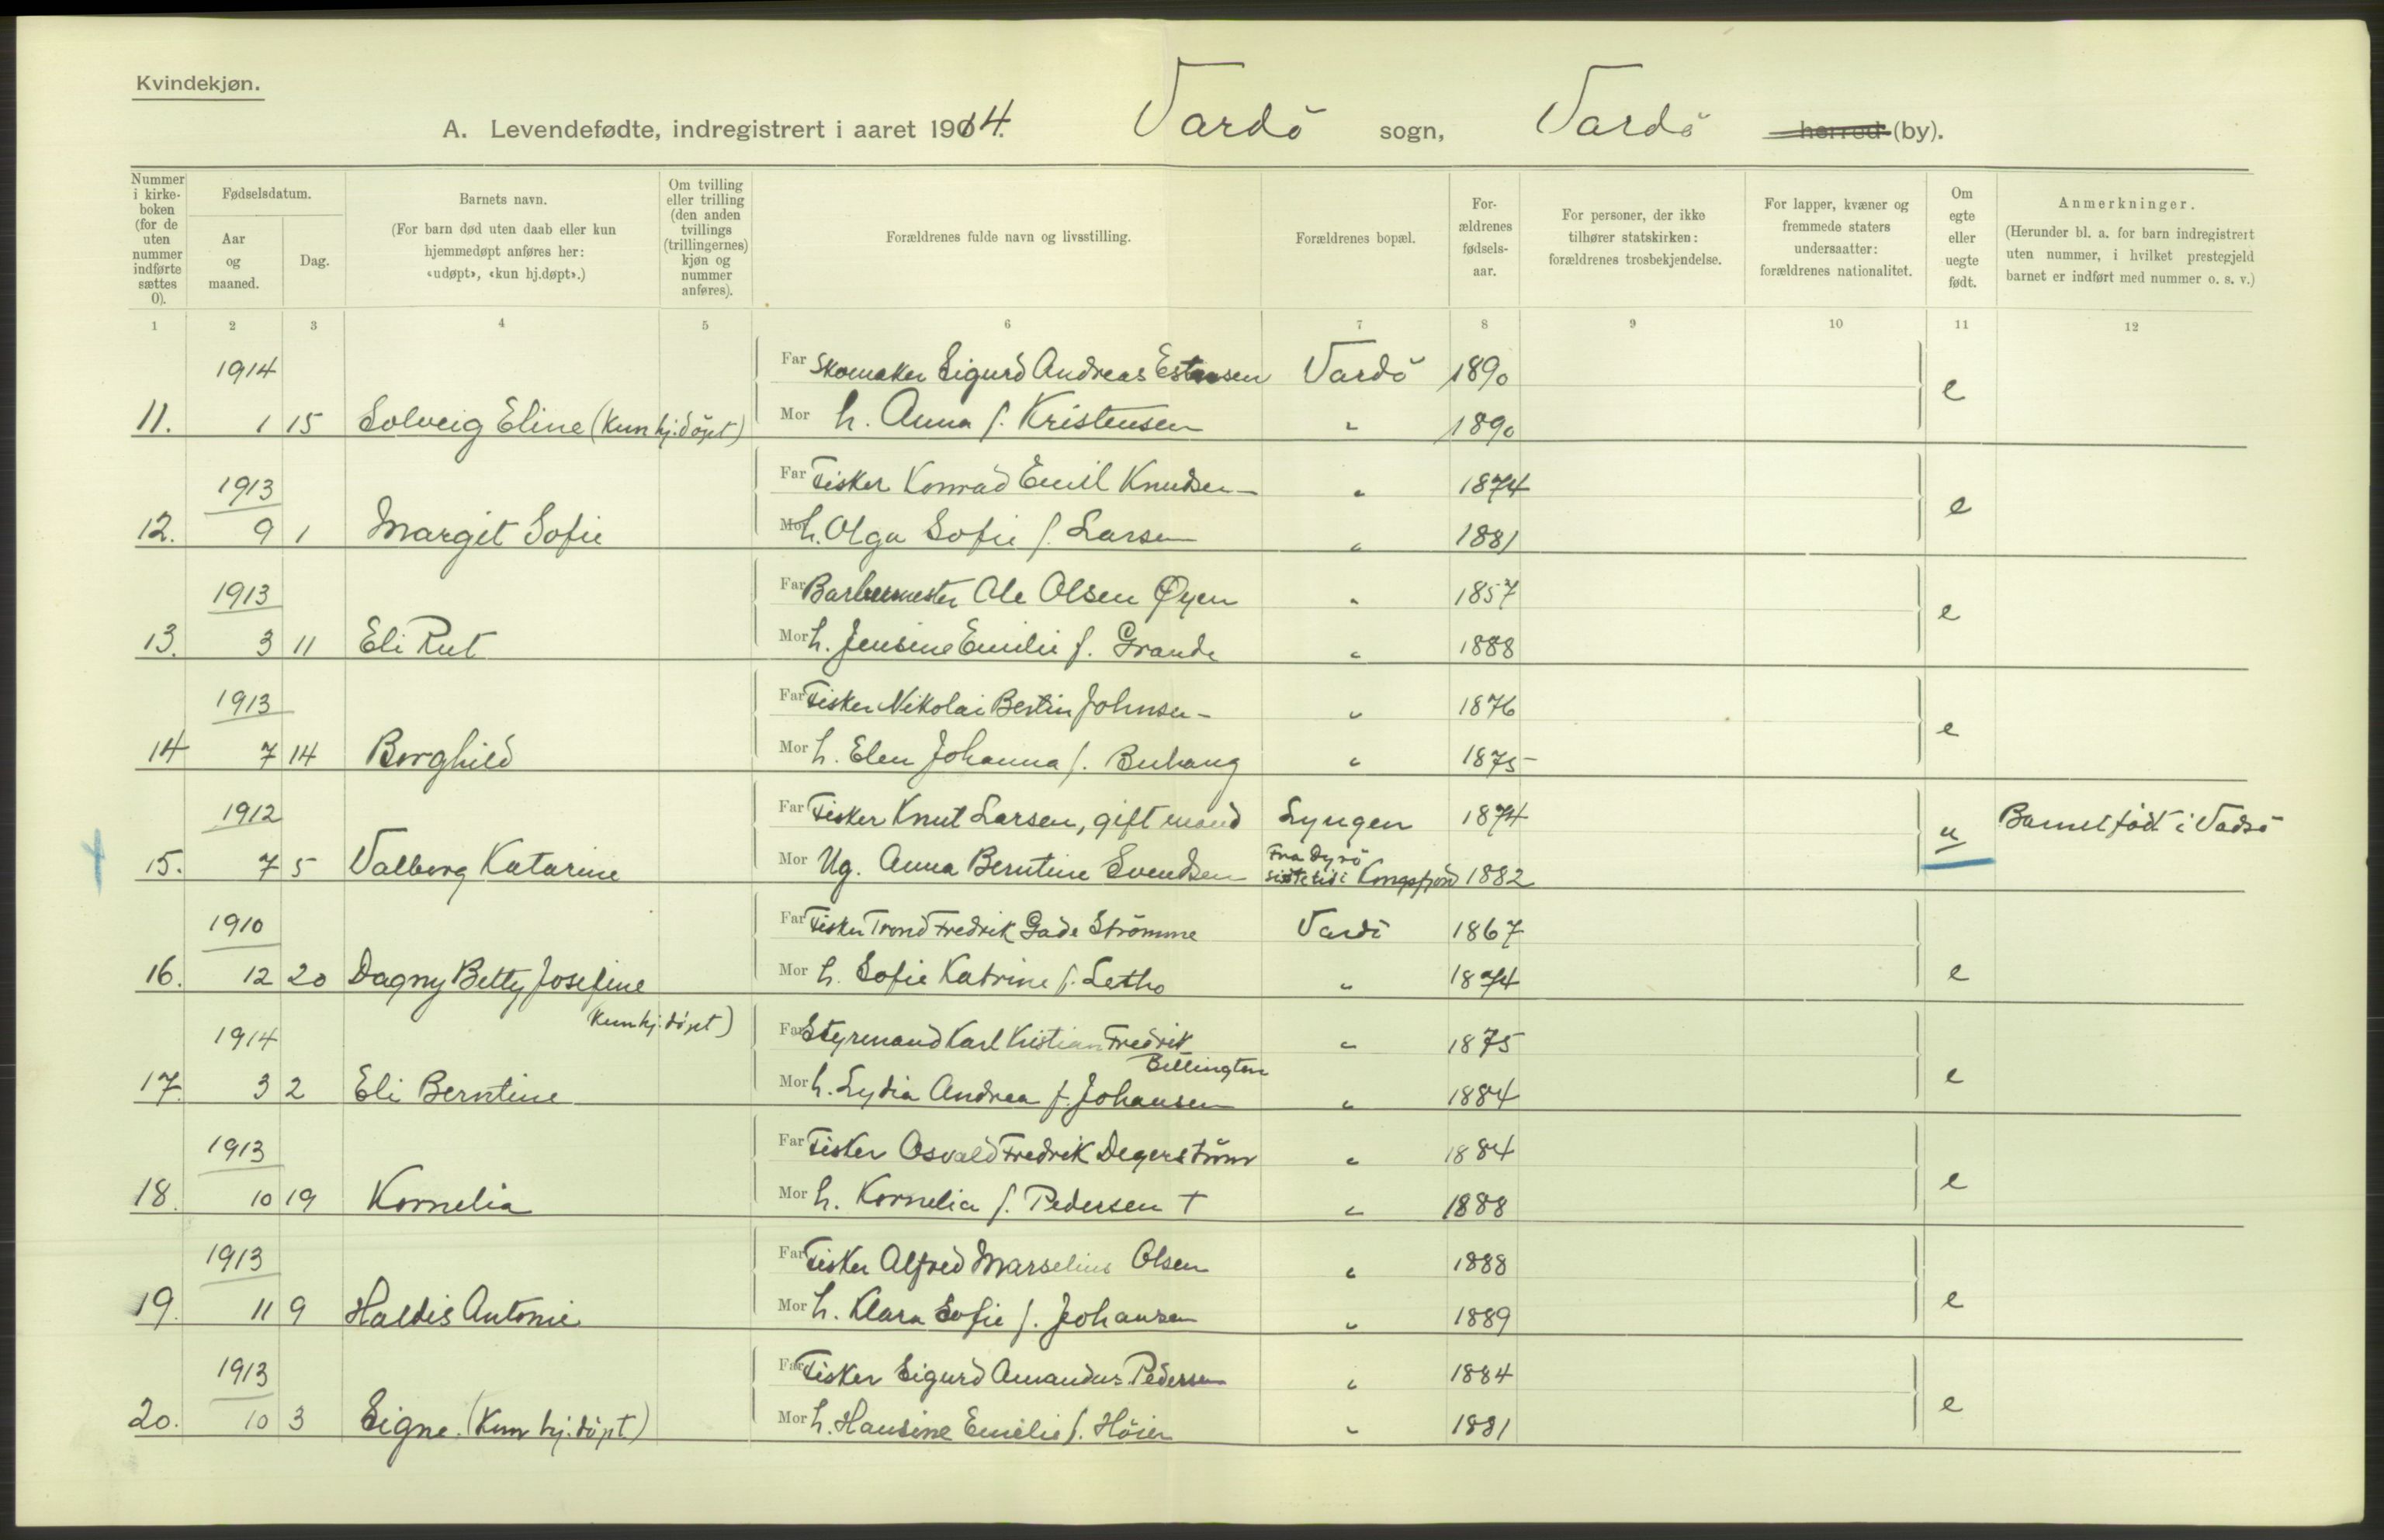 Kvindekjøn.
A. Levendefødte, indregistrert i aaret 1914. Vardö sogn, Vardö herred (by).
Nummer i kirkeboken (for de uten nummer indførte sættes 0).
Fødselsdatum.
Aar og maaned.
Dag.
Barnets navn.
(For barn død uten daab eller kun hjemmedøpt anføres her: «udøpt», «kun hj.døpt».)
Om tvilling eller trilling (den anden tvillings (trillingernes) kjøn og nummer anføres).
Forældrenes fulde navn og livsstilling.
Forældrenes bopæl.
Forældrenes fødselsaar.
For personer, der ikke tilhører statskirken: forældrenes trosbekjendelse.
For lapper, kvæner og fremmede staters undersaatter: forældrenes nationalitet.
Om egte eller uegte født.
Anmerkninger.
(Herunder bl. a. for barn indregistrert uten nummer, i hvilket prestegjeld barnet er indført med nummer o. s. v.)
1 2 3 4 5 6 7 8 9 10 11 12
1914 Far Skomaker Sigurd Andreas Vardö 1890 e
11. 1 15 Solveig Eline (Kun hj.döpt) Mor h. Anna f. Kristensen " 1890
1913 Far Fisker Konrad Emil Knudsen " 1874 e
12. 9 1 Margit Sofie Mor h. Olga Sofie f. Larsen " 1881
1913 Far Barbermester Ole Olsen Øyen " 1857 e
13. 3 11 Eli Rut Mor h. Jensine Emilie f. Grande " 1888
1913 Far Fisker Nikolai Bertin Johnsen " 1876 e
14 7 14 Borghild Mor h. Elen Johanna f. Buhaug " 1875
1912 Far Fisker Knut Larsen, gift mand Lyngen 1874 u Barnet født i Vadsö
15. 7 5 Valborg Katarine Mor Ug. Anna Berntine Svendsen Fra Dyrö sidste tid i Kongsfjord 1882
1910 Far Fisker Trond Fredrik Gade Strömme Vardö 1867
16. 12 20 Dagny Betty Josefine Mor h. Sofie Katrine f. Letho " 1874 e
(Kun hj.döpt)
1914 Far Styrmand Karl Kristian Fredrik Billington " 1875
17. 3 2 Eli Berntine Mor h. Lydia Andrea f. Johansen " 1884 e
1913 Far Fisker Osvald Fredrik Degerström " 1884
18. 10 19 Kornelia Mor h. Kornelia f. Pedersen † " 1888 e
1913 Far Fisker Alfred Marselius Olsen " 1888
19. 11 9 Haldis Antonie Mor h. Klara Sofie f. Johansen " 1889 e
1913 Far Fisker Sigurd Amandus Pedersen " 1884
20. 10 3 Signe. (Kun hj.döpt) Mor h. Hansine Emelie f. Höier " 1881 e